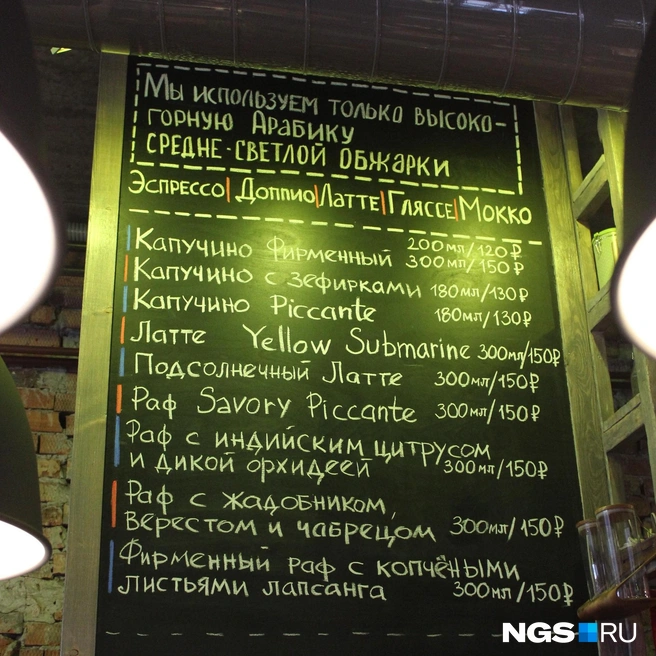 Мы используем только высоко-
горную Арабику
средне-светлой обжарки
Эспрессо|Доппио|Латте|Гляссе|Мокко
200мл/120₽
Капучино Фирменный 300мл/150₽
Капучино с зефирками 180мл/130₽
Капучино Piccante 180мл/130₽
Латте Yellow Submarine 300мл/150₽
Подсолнечный Латте 300мл/150₽
Раф Savory Piccante 300мл/150₽
Раф с индийским цитрусом
и дикой орхидеей 300мл/150₽
Раф с жадобником,
верестом и чабрецом 300мл/150₽
Фирменный раф с копчёными
листьями лапсанга 300мл/150₽
NGS RU